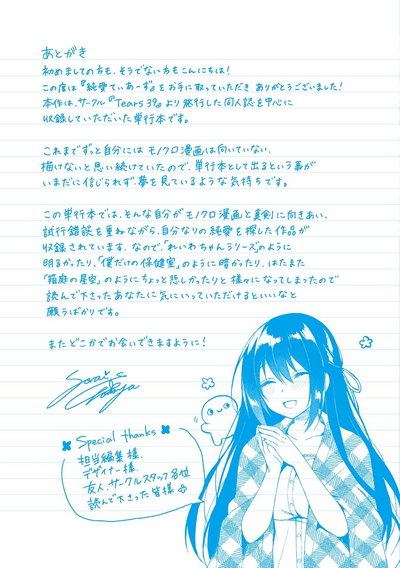 あとがき
初めましての方も、そうでない方もこんにちは!
この度は『純愛てぃあーず』をお手に取っていただき ありがとうございました!
本作は、サークル『Tears39』より発行した同人誌を中心に
収録していただいた単行本です。
これまでずっと自分には モノクロ漫画は向いていない、
描けないと思い続けていたので、単行本として出るという事が
いまだに信じられず、夢を見ているような気持ちです。
この単行本では、そんな自分がモノクロ漫画と真剣に向きあい、
試行錯誤を重ねながら、自分なりの純愛を探した作品が
収録されています。なので、「れいわちゃんラリーズ」のように
明るかったり、「僕だけの保健室」のように暗かったり、はたまた
「箱庭の星空」のようにちょっと悲しかったりと様々になってしまったので
読んで下さったあなたに気にいっていただけるといいなと
願うばかりです。
またどこかでお会いできますように!
Special thanks
担当編集様、
デザイナー様、
友人、サークルスタッフ各位
読んで下さった皆様